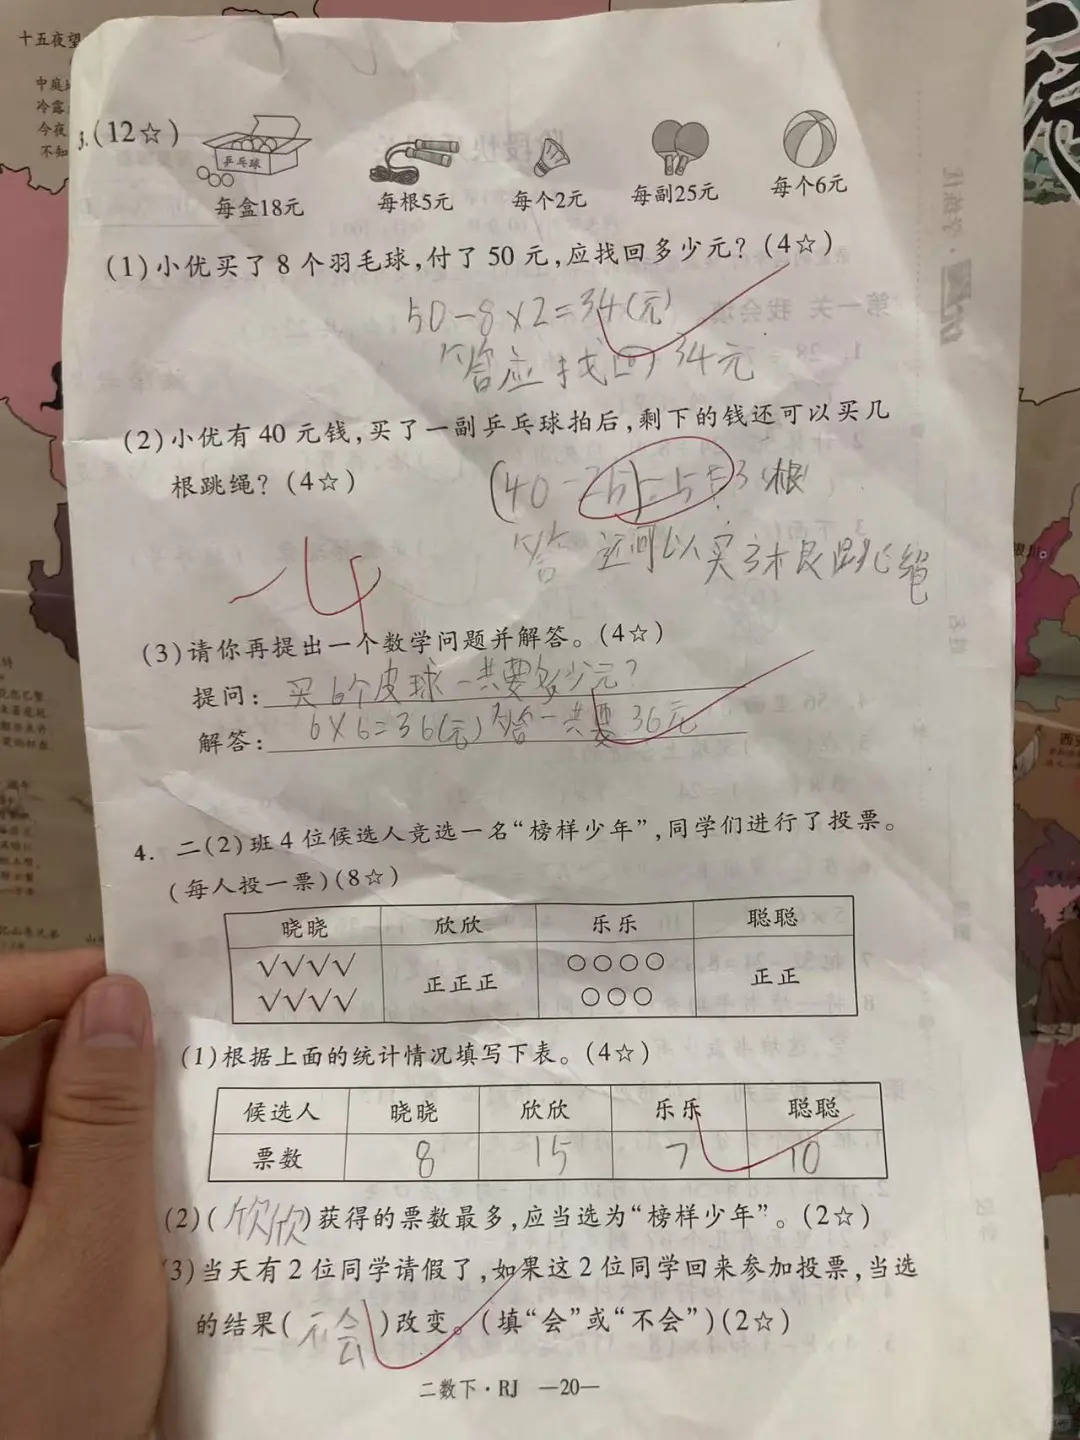 十五夜望
中庭
冷露
今夜
不知
3.(12☆)
乒乓球
每盒18元 每根5元 每个2元 每副25元 每个6元
(1)小优买了8个羽毛球,付了50元,应找回多少元?(4☆)
50-8×2=34(元)
答应找回34元
(2)小优有40元钱,买了一副乒乓球拍后,剩下的钱还可以买几
根跳绳?(4☆)
(40-25)÷5=3(根)
答还可以买3根跳绳
-4
(3)请你再提出一个数学问题并解答。(4☆)
提问:买6个皮球一共要多少元?
解答:6×6=36(元)答一共要36元
4. 二(2)班4位候选人竞选一名“榜样少年”,同学们进行了投票。
(每人投一票)(8☆)
晓晓 欣欣 乐乐 聪聪
√√√√ 正正正 ○○○○ 正正
√√√√ ○○○
(1)根据上面的统计情况填写下表。(4☆)
候选人 晓晓 欣欣 乐乐 聪聪
票数 8 15 7 10
(2)(欣欣)获得的票数最多,应当选为“榜样少年”。(2☆)
(3)当天有2位同学请假了,如果这2位同学回来参加投票,当选
的结果(不会)改变。(填“会”或“不会”)(2☆)
二数下·RJ —20—